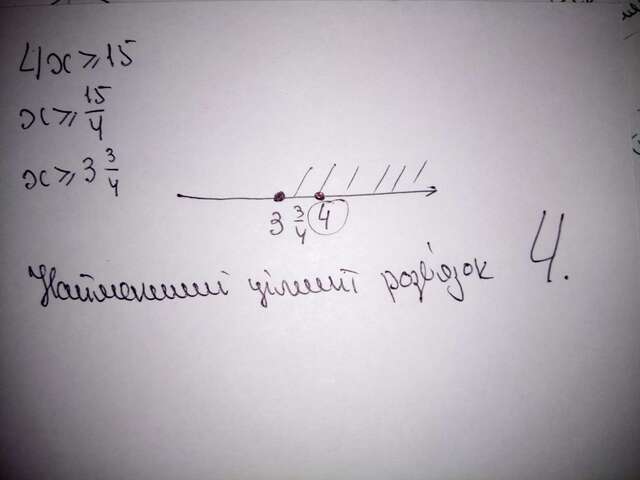 4x ≥ 15
x ≥ 15/4
x ≥ 3 3/4
3 3/4 4
Найменший цілий розв'язок 4.